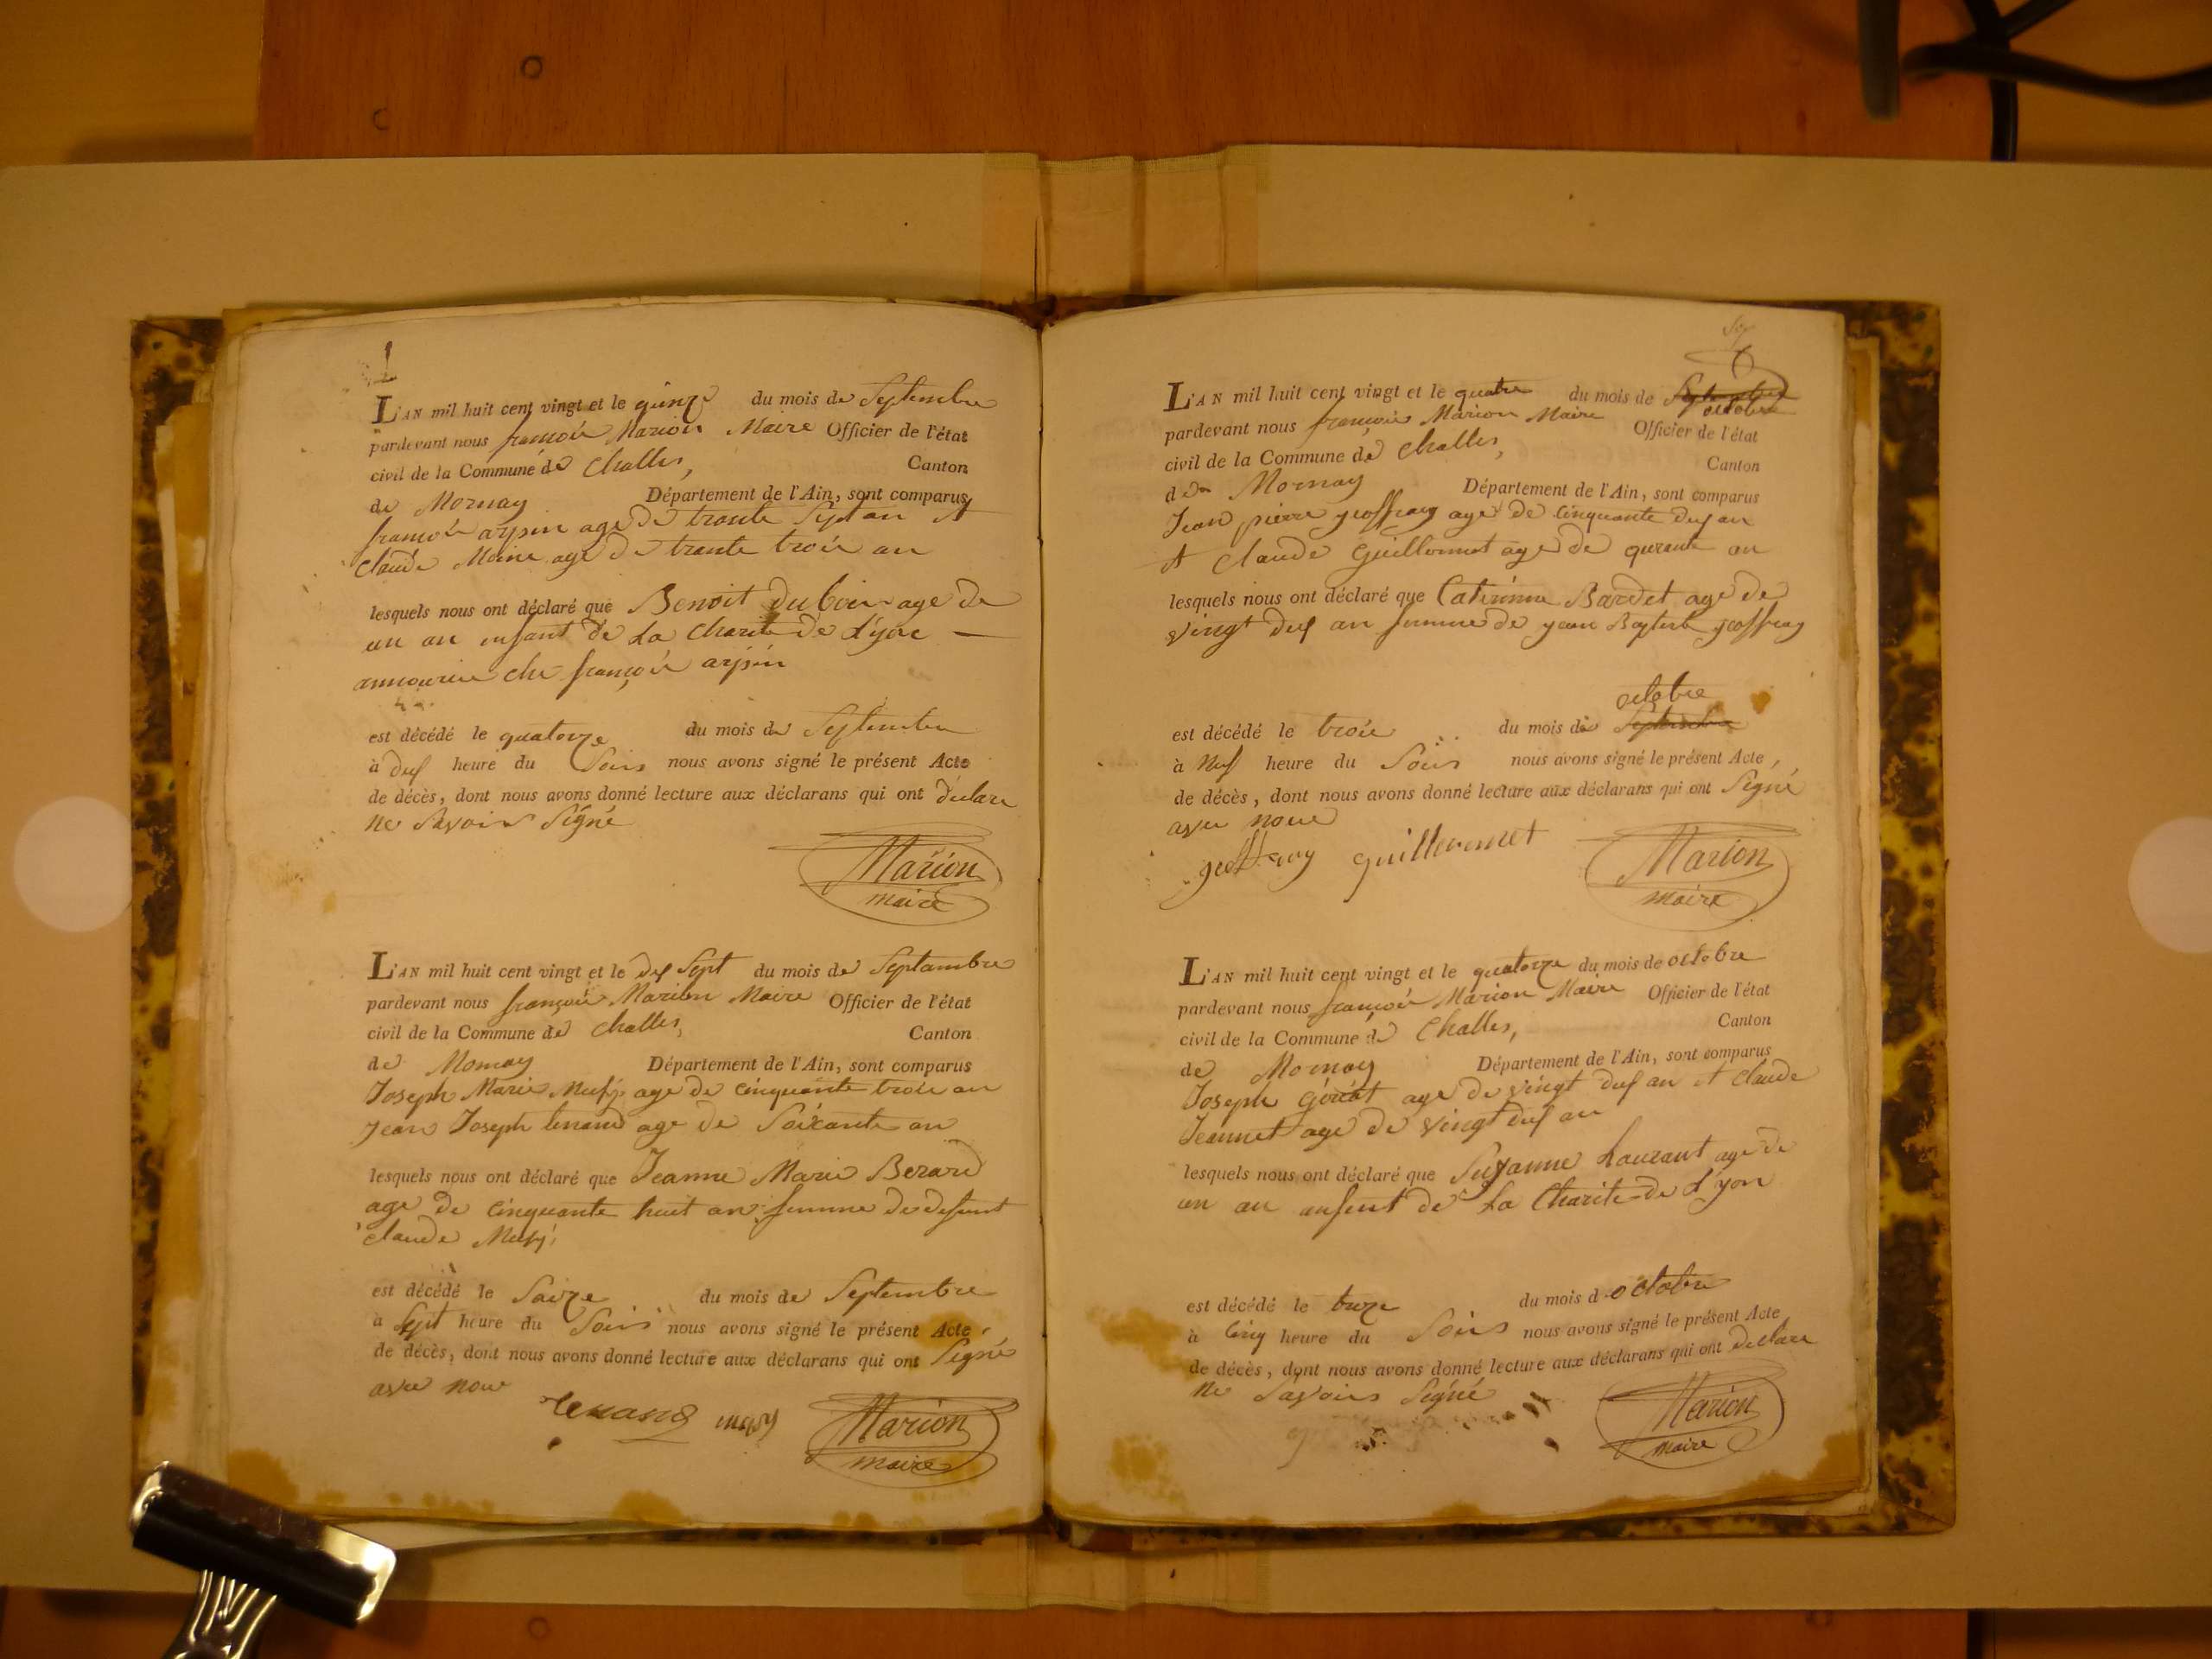 L'AN mil huit cent vingt et le quinze du mois de Septembre
pardevant nous françois Marion Maire Officier de l'état
civil de la Commune de Challes, Canton
de Mornay Département de l'Ain, sont comparus
françois arpin age de trante Sept an et
Claude Moine age de trante trois an
lesquels nous ont déclaré que Benoit Dubois age de
un an enfant de La Charite De Lyone —
che françois arpin
est décédé le quatorze du mois de Septembre
à deux heure du Soirs nous avons signé le présent Acte
de décès, dont nous avons donné lecture aux déclarans qui ont déclare
ne Savoir Signé
Marion
maire
L'AN mil huit cent vingt et le dix Sept du mois de Septambre
pardevant nous françois Marion Maire Officier de l'état
civil de la Commune de Challes, Canton
de Mornay Département de l'Ain, sont comparus
Joseph Marie age de cinquante trois an
Jean Joseph age de Soixante an
lesquels nous ont déclaré que Jeanne Marie Berard
age de cinquante huit an femme de defunt
Claude
est décédé le Saize du mois de Septembre
à Sept heure du Soirs nous avons signé le présent Acte
de décès, dont nous avons donné lecture aux déclarans qui ont Signé
avec nous
Marion
maire
L'AN mil huit cent vingt et le quatre du mois de Septembre octobre
pardevant nous françois Marion Maire Officier de l'état
civil de la Commune de Challes, Canton
de Mornay Département de l'Ain, sont comparus
Jean pierre geoffray age de cinquante deux an
et Claude Guillermet age de qurante an
lesquels nous ont déclaré que Caterinne Bardet age de
vingt deux an femme de jean Baptiste geoffray
octobre
est décédé le trois du mois de Septembre
à Neuf heure du Soirs nous avons signé le présent Acte,
de décès, dont nous avons donné lecture aux déclarans qui ont Signé
avec nous
geoffray guillermet Marion
maire
L'AN mil huit cent vingt et le quatorze du mois de octobre
pardevant nous françois Marion Maire Officier de l'état
civil de la Commune de Challes, Canton
de Mornay Département de l'Ain, sont comparus
Joseph age de vingt deux an et Claude
Jeannet age de vingt deux an
lesquels nous ont déclaré que Suzanne Laurant age de
un an anfent de La Charite de Lyon
est décédé le treze du mois d octobre
à Cinq heure du Soirs nous avons signé le présent Acte
de décès, dont nous avons donné lecture aux déclarans qui ont declare
ne Savoirs Signé
Marion
maire